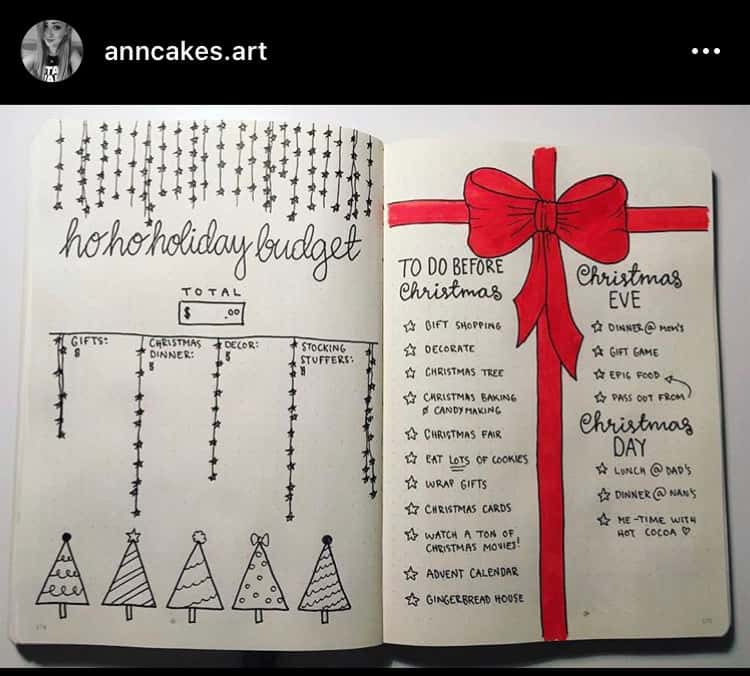 anncakes.art
ho ho holiday budget
TOTAL
$ .00
GIFTS:
$
CHRISTMAS
DINNER:
$
DECOR:
$
STOCKING
STUFFERS:
$
TO DO BEFORE
Christmas
GIFT SHOPPING
DECORATE
CHRISTMAS TREE
CHRISTMAS BAKING
& CANDY MAKING
CHRISTMAS FAIR
EAT LOTS OF COOKIES
WRAP GIFTS
CHRISTMAS CARDS
WATCH A TON OF
CHRISTMAS MOVIES!
ADVENT CALENDAR
GINGERBREAD HOUSE
Christmas
EVE
DINNER @ MOM'S
GIFT GAME
EPIC FOOD
PASS OUT FROM
Christmas
DAY
LUNCH @ DAD'S
DINNER @ NAN'S
ME-TIME WITH
HOT COCOA ♡